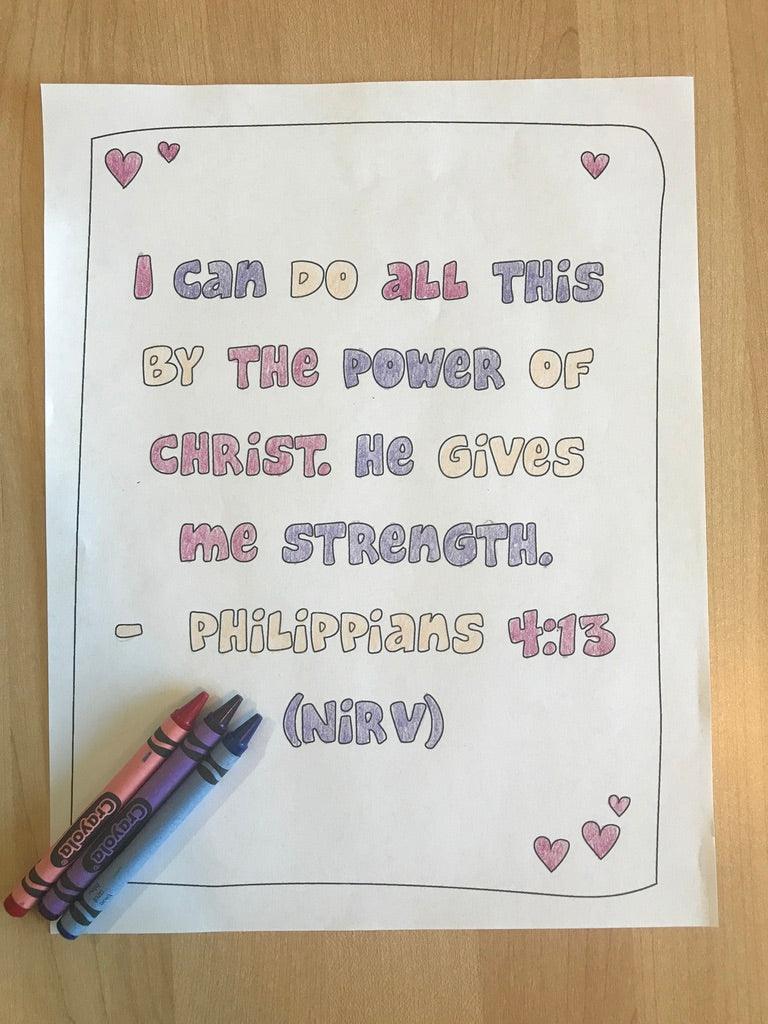 I can DO aLL THiS
BY THe POWeR OF
CHRiST. He GiVeS
me STRenGTH.
- PHiLiPPianS 4:13
(NiRV)
Crayola
Crayola